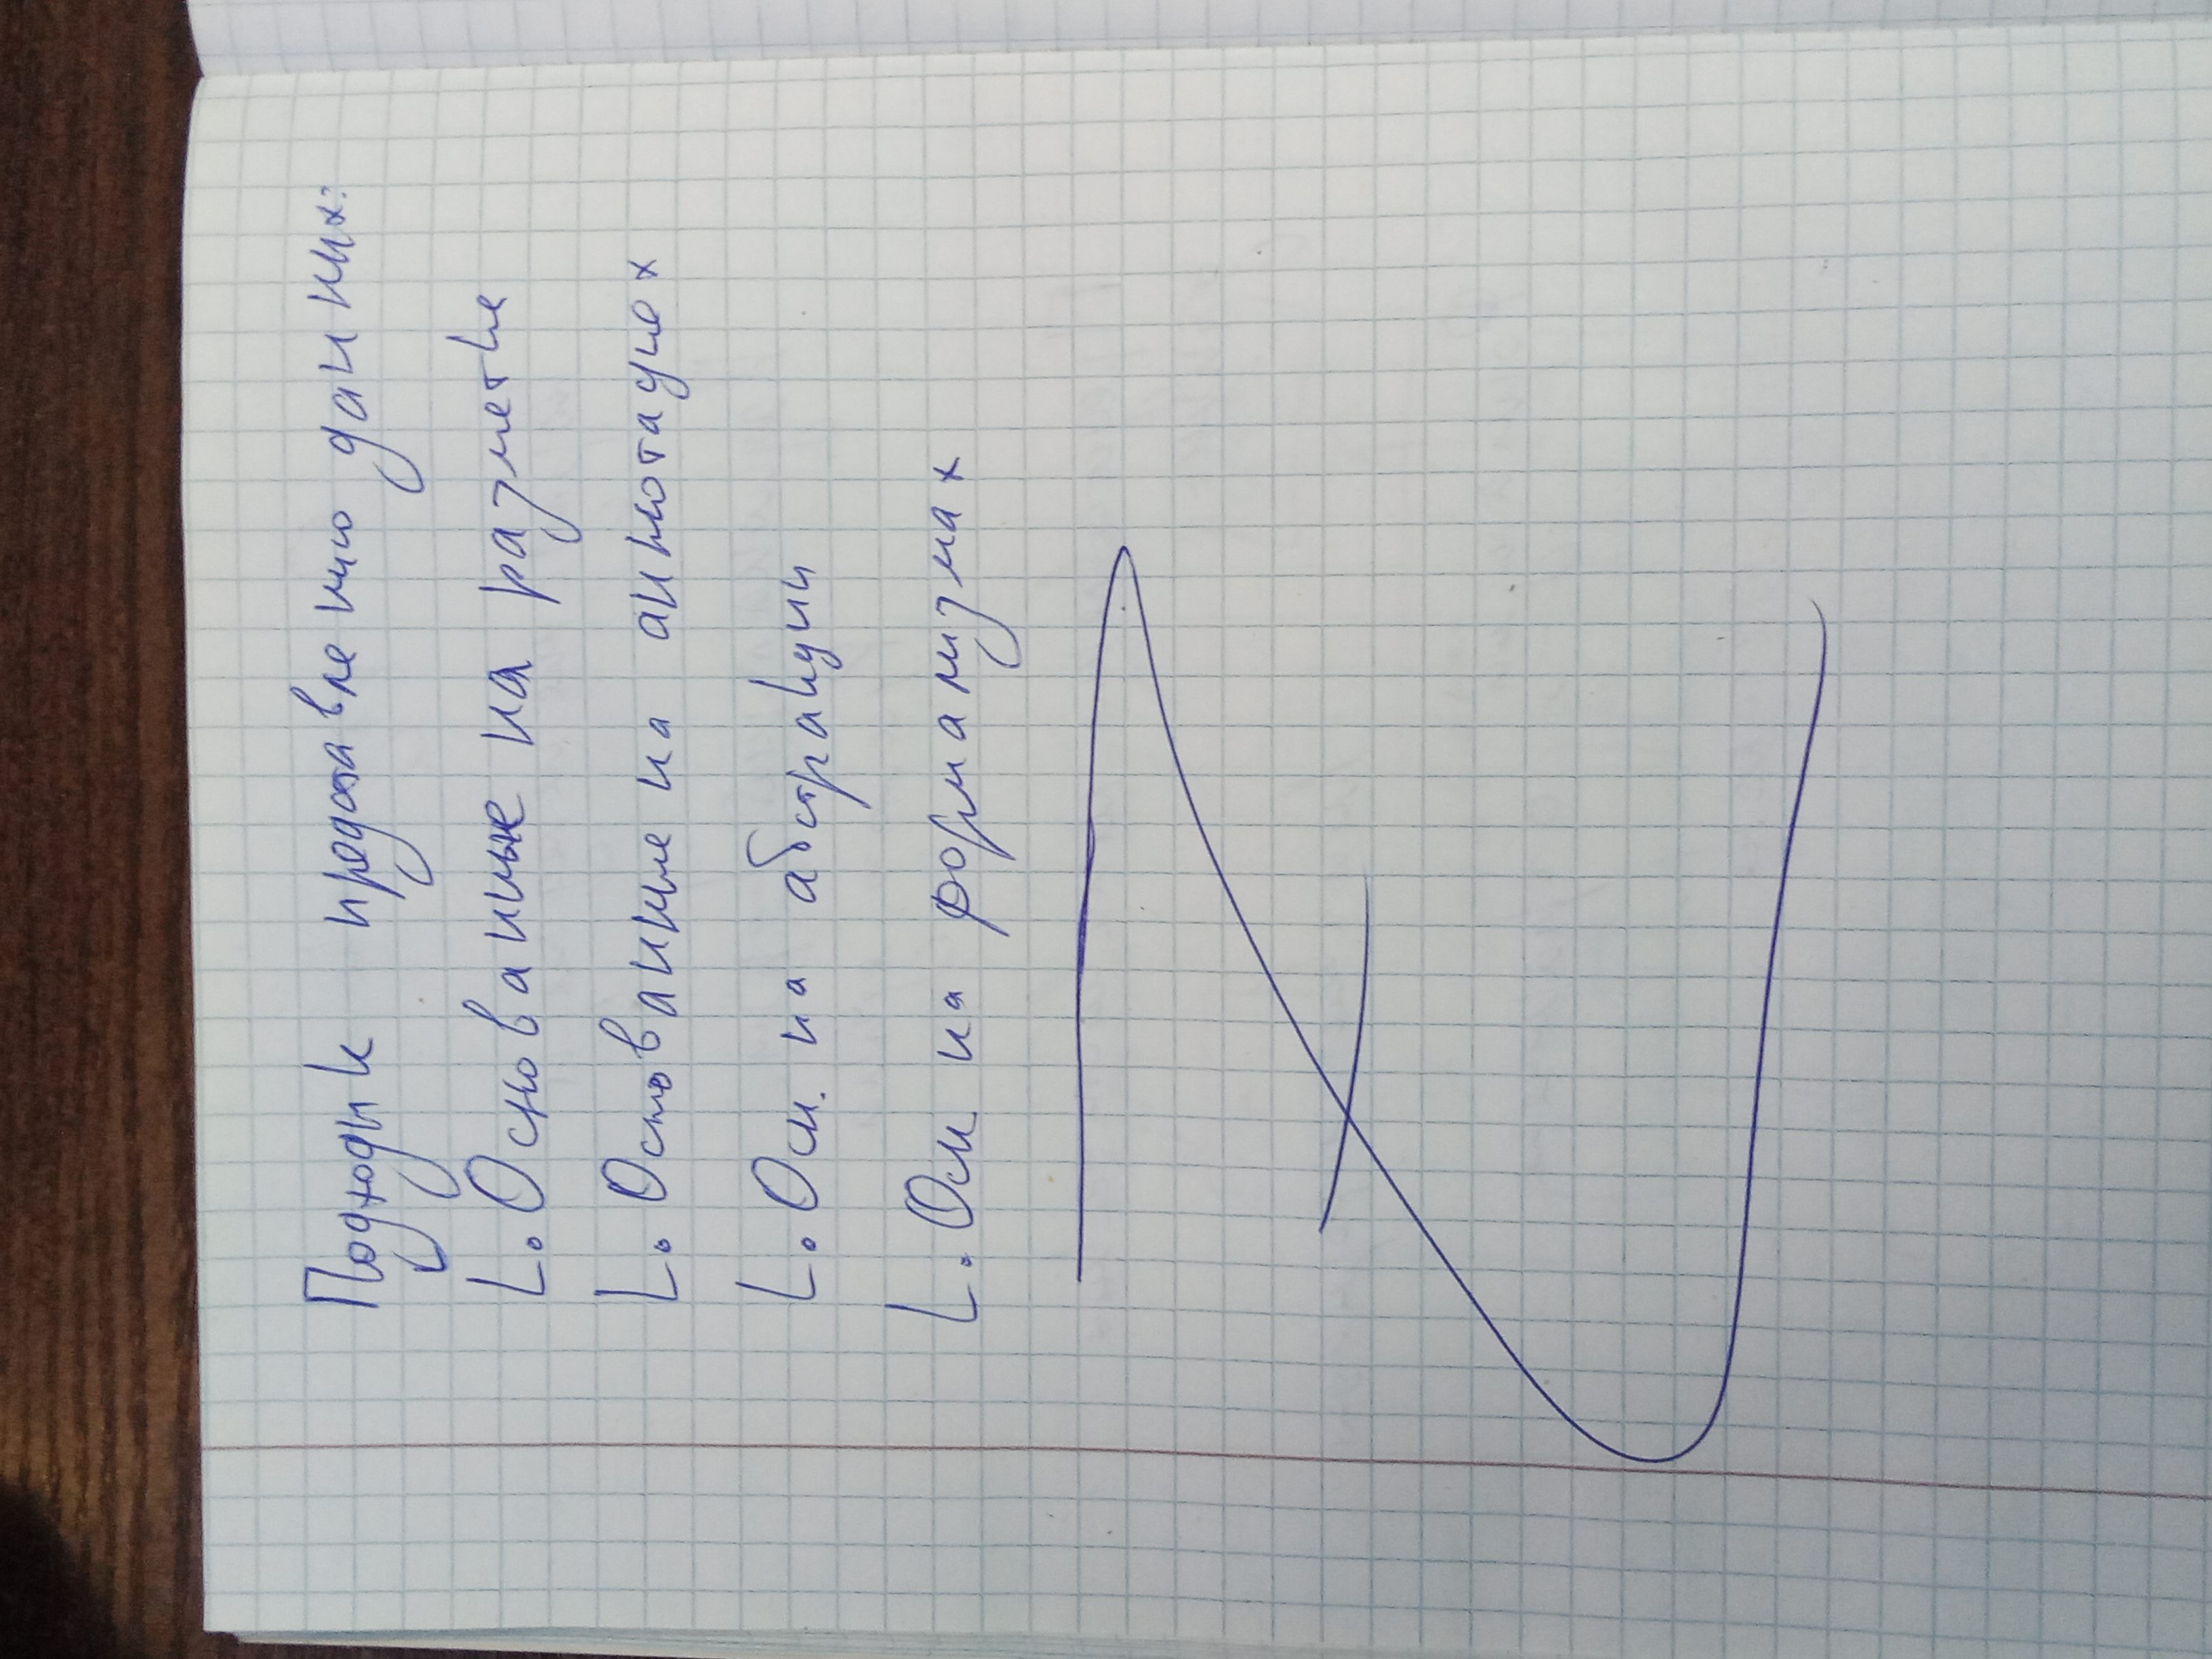 Подходы к представлению данных:
L. Основанные на разметке
L. Основанные на аннотациях
L. Осн. на абстракции
L. Осн. на формализмах